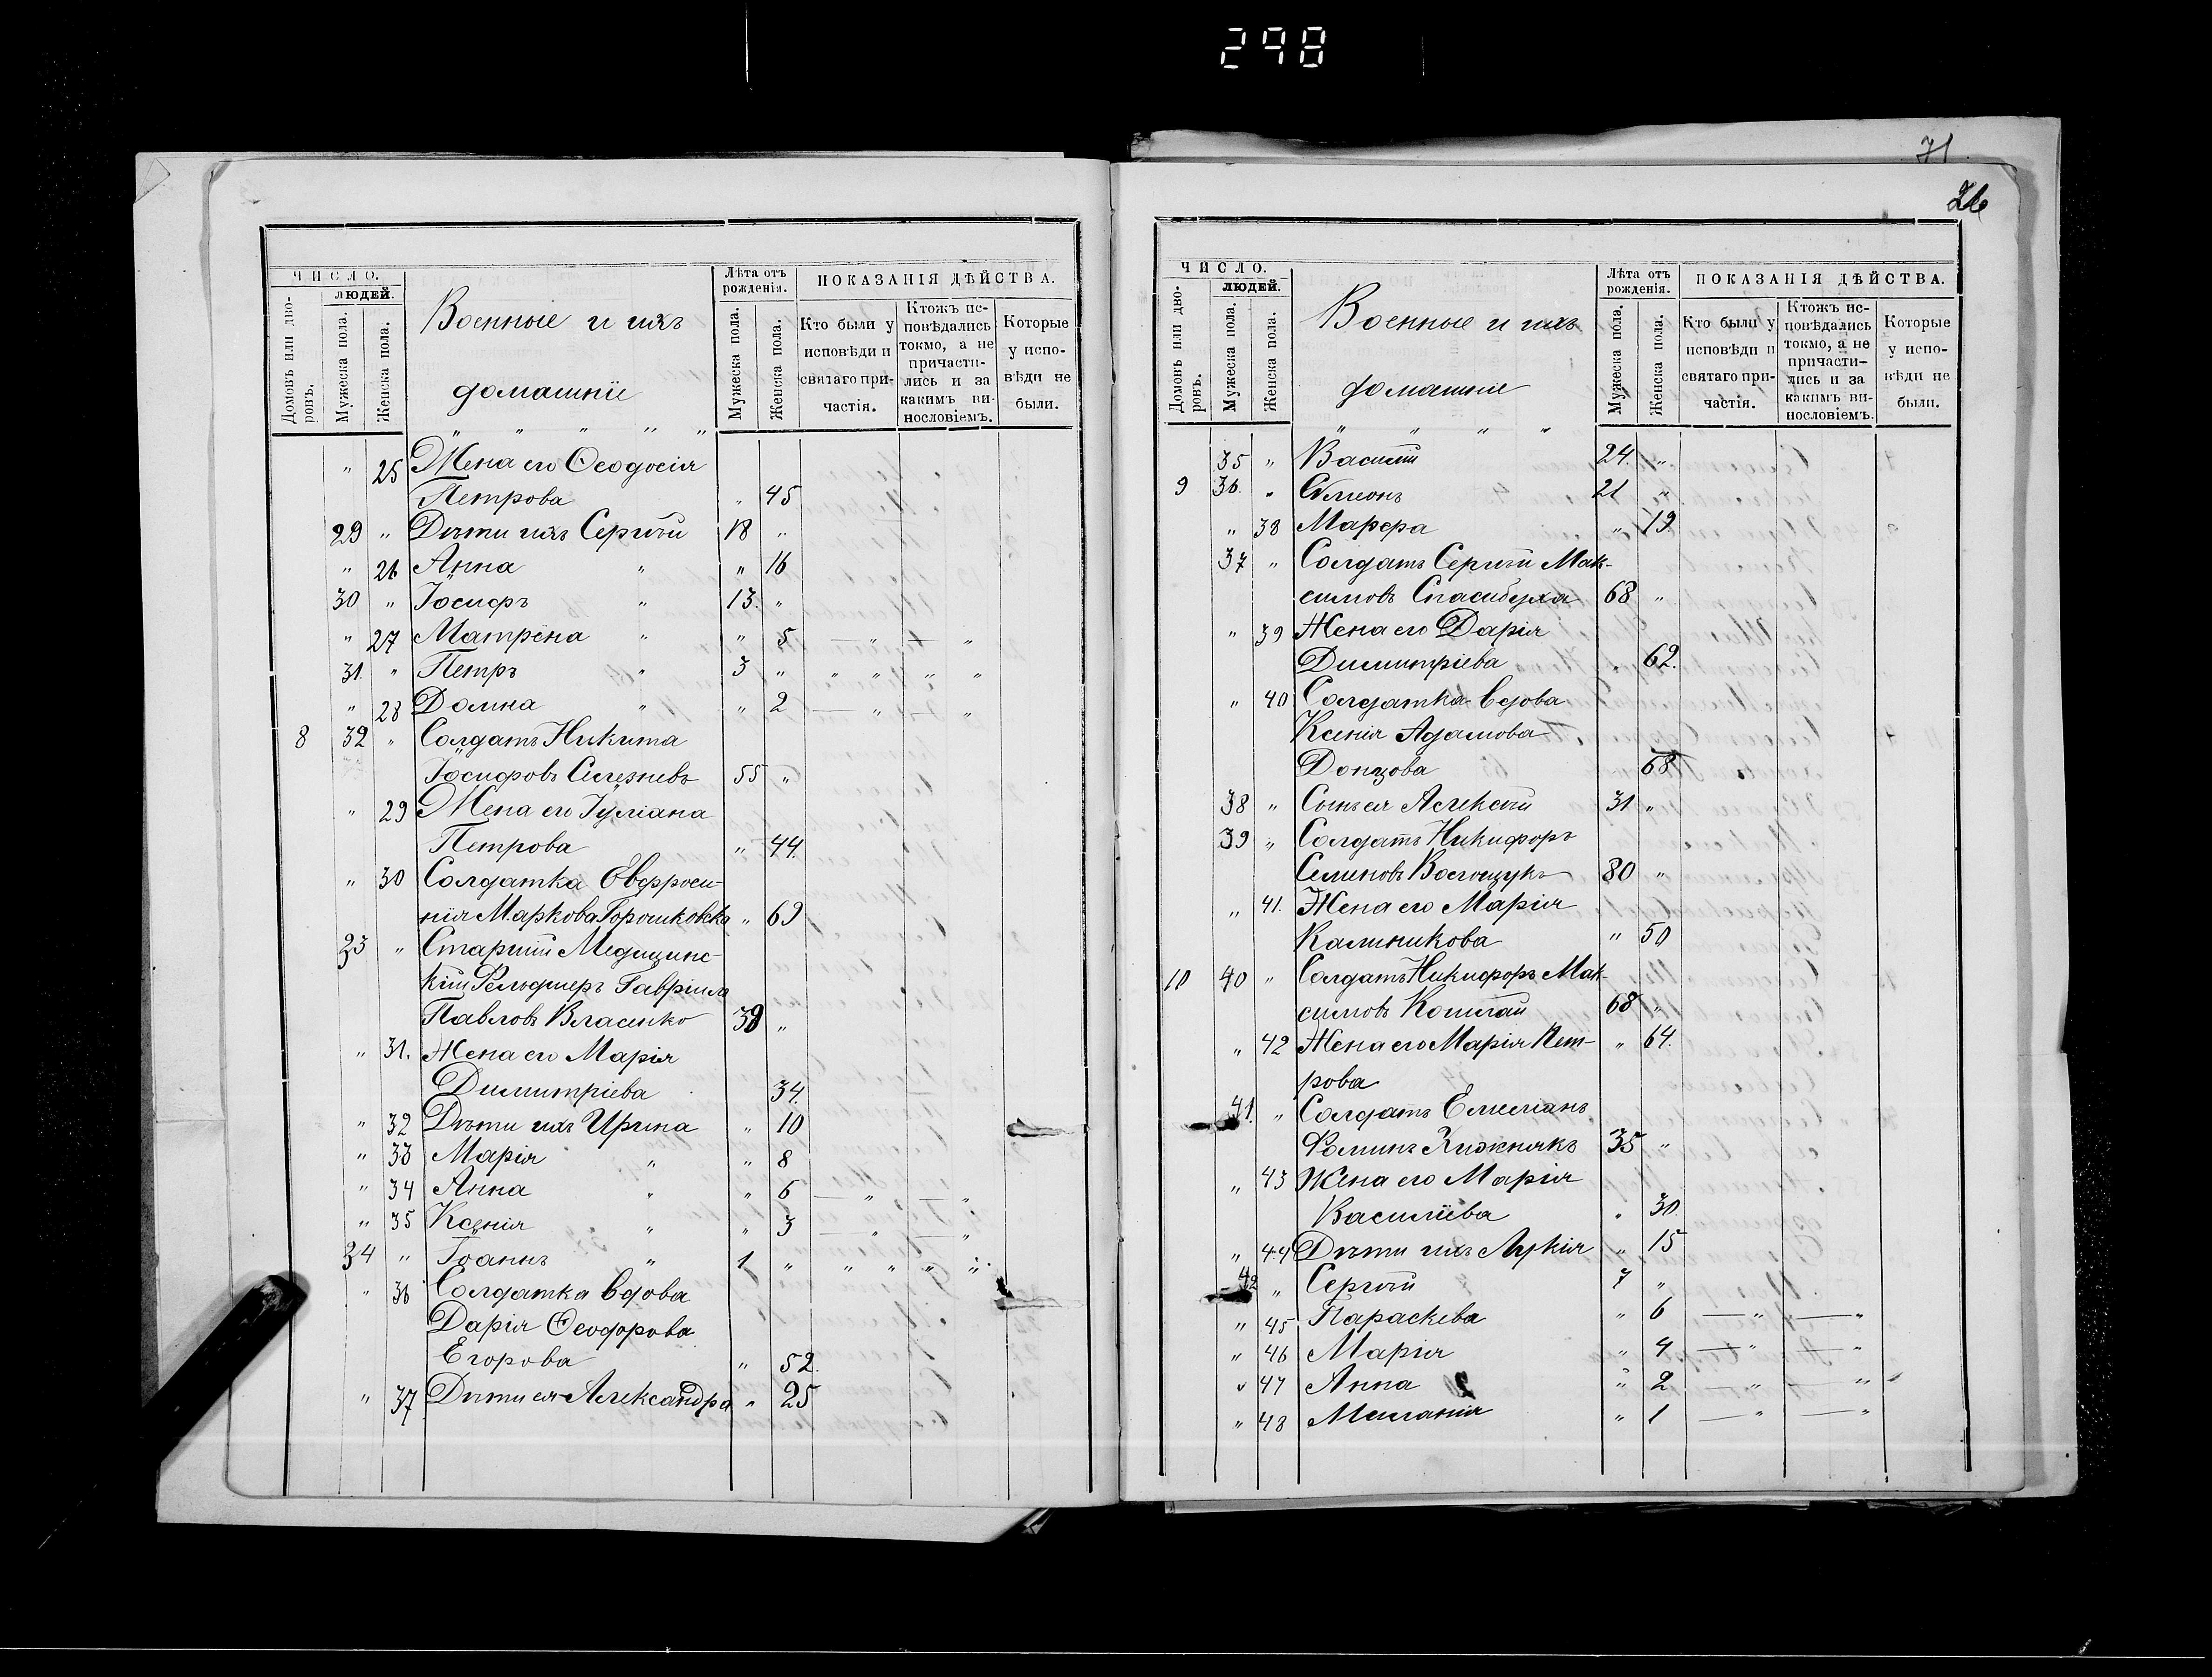 298
71
26
ЧИСЛО.
ЛЮДЕЙ.
Домовъ или дворовъ.
Мужеска пола.
Женска пола.
Военные и ихъ
домашніе
Лѣта отъ рожденія.
Мужеска пола.
Женска пола.
ПОКАЗАНІЯ ДѢЙСТВА.
Кто были у исповѣди и святаго причастія.
Ктожъ исповѣдались токмо, а не причастились и за какимъ винословіемъ.
Которые у исповѣди не были.
" 25 Жена его Ѳеодосія
Петрова " 45
29 " Дѣти ихъ Сергѣй 18 "
" 26 Анна " " 16
30 " Іосифъ " 13. "
" 27 Матрена " " 5 — " — "
31. " Петръ " 3 " " " " "
" 28 Домна " " 2 — " — "
8 32 " Солдатъ Никита
Іосифовъ Селезневъ 55 "
" 29 Жена его Іуліана
Петрова " 44.
" 30 Солдатка Евфроси-
нія Маркова Горошковска " 69
33 " Старшій Медицинс-
кій Фельдшеръ Гавріилъ
Павловъ Власенко 39 "
" 31. Жена его Марія
Димитріева 34.
" 32 Дѣти ихъ Ирина " 10
" 33 Марія " " 8
" 34 Анна " " 6 — " — "
" 35 Ксенія " " 3 — " — "
34 " Іоаннъ " 1 " " " " "
" 36 Солдатка вдова
Дарія Ѳеодорова
Егорова " 52.
" 37 Дѣти ея Александра " 25
ЧИСЛО.
ЛЮДЕЙ.
Домовъ или дворовъ.
Мужеска пола.
Женска пола.
Военные и ихъ
домашніе
Лѣта отъ рожденія.
Мужеска пола.
Женска пола.
ПОКАЗАНІЯ ДѢЙСТВА.
Кто были у исповѣди и святаго причастія.
Ктожъ исповѣдались токмо, а не причастились и за какимъ винословіемъ.
Которые у исповѣди не были.
35 " Василій 24. "
9 36. " Симеонъ 21 "
" 38 Марфа " 19.
37 " Солдатъ Сергѣй Мак-
симовъ Спасибуха 68 "
" 39 Жена его Дарія
Димитріева " 62.
" 40 Солдатка вдова
Ксенія Адамова
Донцова 68
38 " Сынъ ея Алексѣй 31 "
39 " Солдатъ Никифоръ
Семеновъ 80 "
" 41. Жена его Марія
Калиникова " 50
10 40 " Солдатъ Никифоръ Мак-
симовъ 68 "
" 42 Жена его Марія Пет- " 64.
рова
41. " Солдатъ Емеліанъ
Фоминъ Книжнякъ 35 "
" 43 Жена его Марія
Василіева " 30.
" 44 Дѣти ихъ Лукія " 15
42 " Сергѣй 7 "
" 45 Параскева " 6 — " — "
" 46 Марія " 4 — " — "
" 47 Анна " 2 — " — "
" 48 Меланія " 1 — " — "